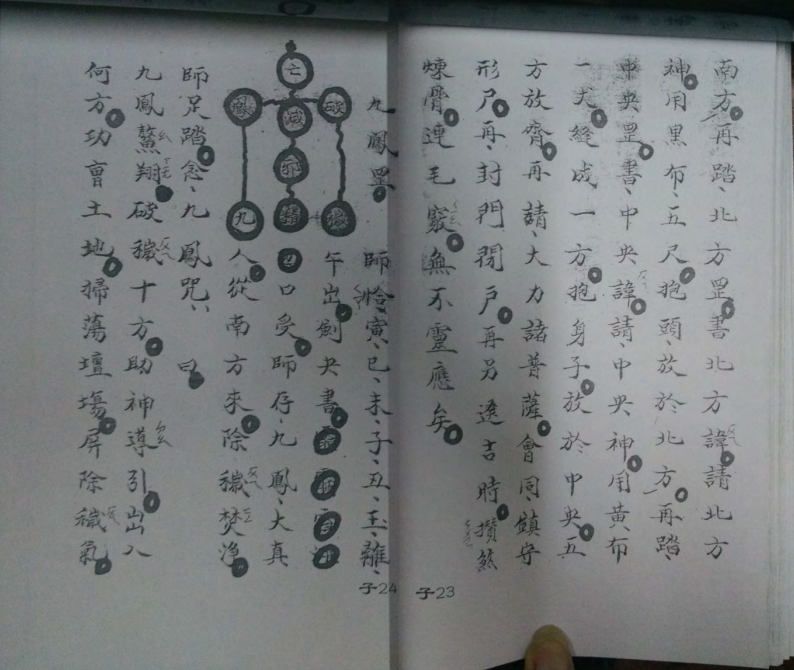 南方再踏、北方罡書北方諱請北方
神用黑布、五尺抱頭、放於北方、再踏、
中央罡書、中央諱請、中央神用黃布
一丈縫成一方抱身子放於中央五
方放齊再請、大力諸普薩會同鎮守
形尸再、封門閉戶再另選吉時攢煞
煉骨連毛竅無不靈應矣
九鳳罡
師恰寅、巳、未、子、丑、玉、離、
午出劍央書
口受師存、九鳳、大真
人從南方來除穢焚净
亡
鳳 減 破
九
師足踏念、九鳳咒、曰
九鳳鰲翔破穢十方助神導引出入
何方功曹土地掃蕩壇場屏除穢氣
子24
子23